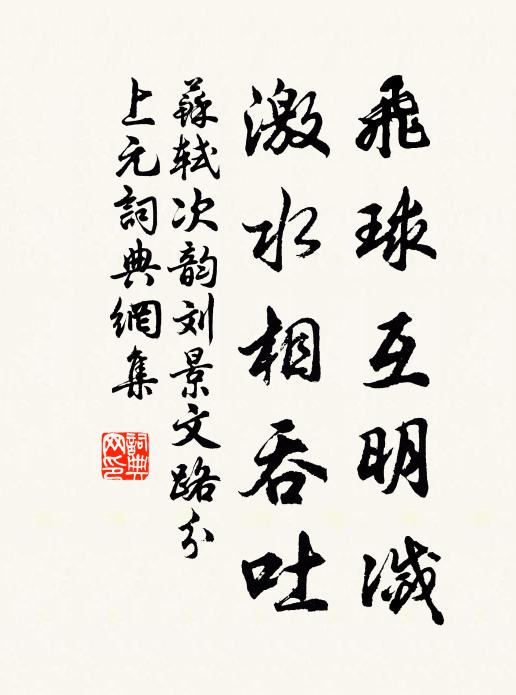 飛球互明滅
激水相吞吐
蘇軾次韵刘景文路分
上元詞典網集
詞典
网印